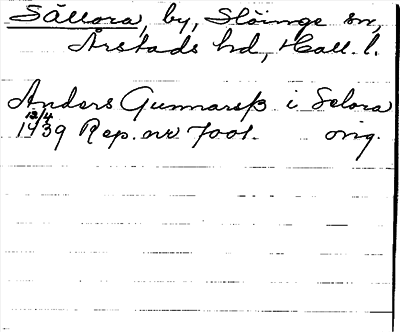 Sällora, by, Slöinge sn,
Årstads hd, Hall. l.
Anders Gunnarsß i Selora
13/4
1439 Rep. nr 7001. orig.